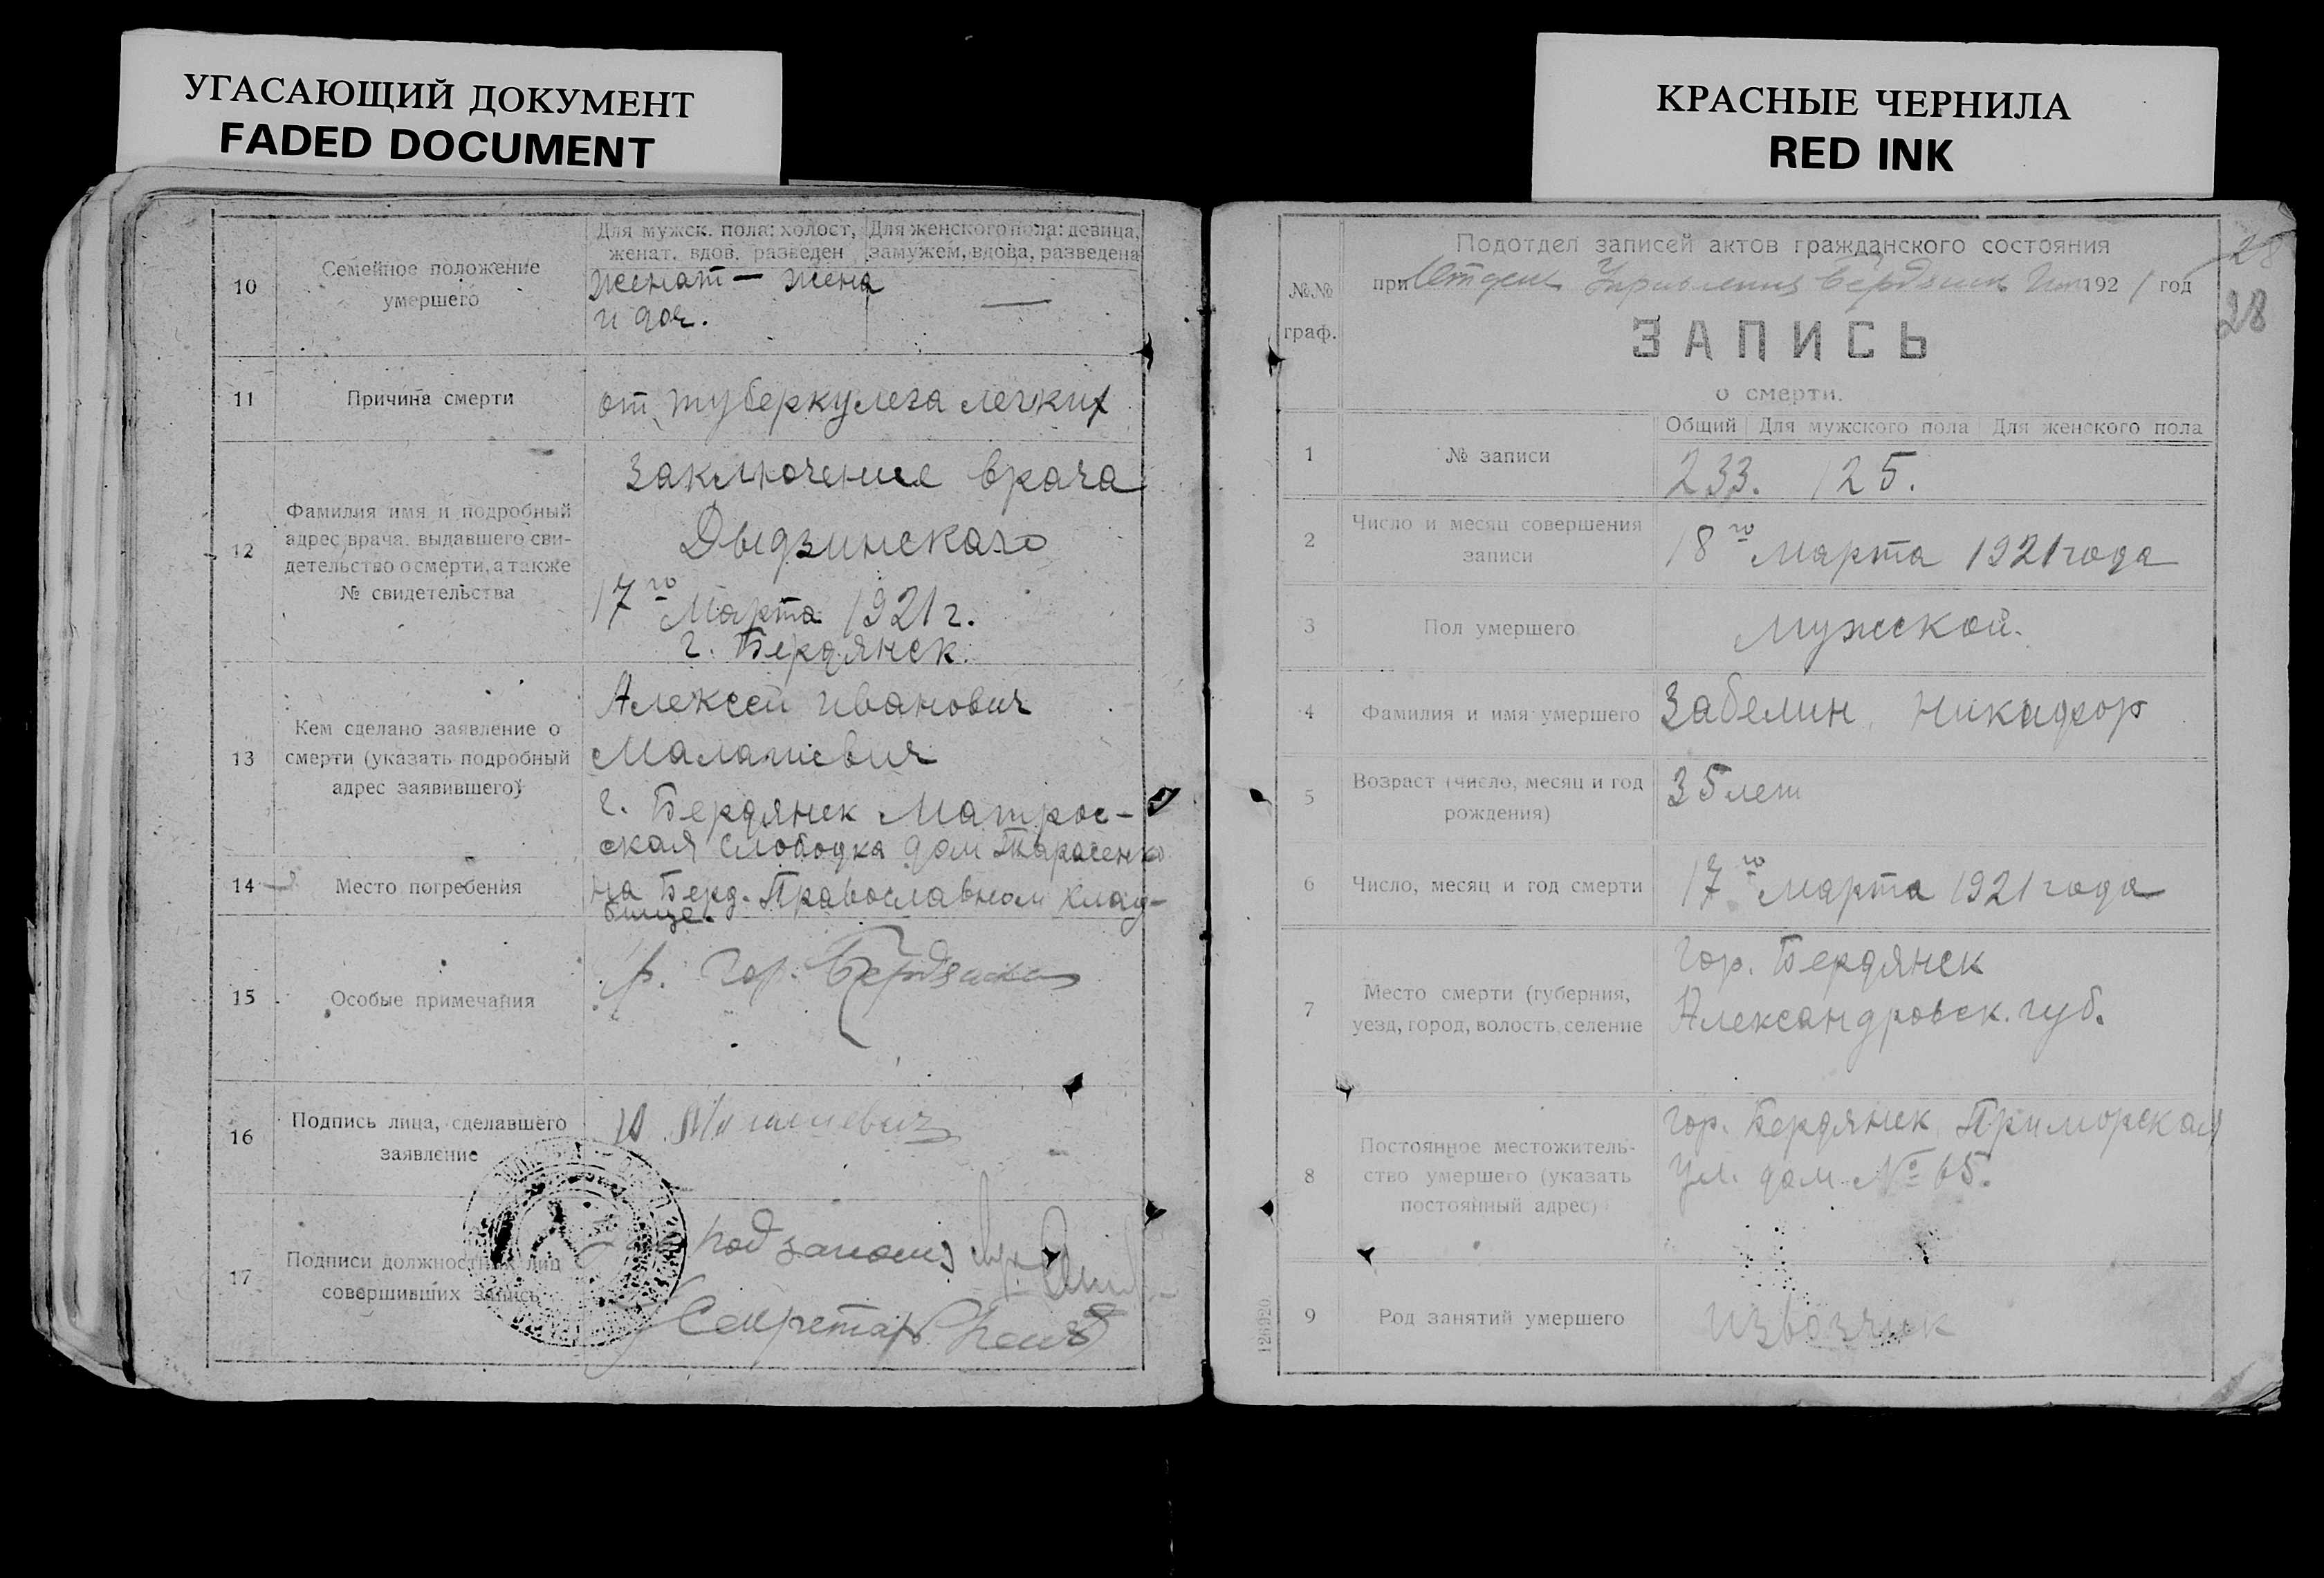 УГАСАЮЩИЙ ДОКУМЕНТ
FADED DOCUMENT
КРАСНЫЕ ЧЕРНИЛА
RED INK
10
Семейное положение
умершего
Для мужск. пола: холост,
женат. вдов. разведен
Для женского пола: девица,
замужем, вдова, разведена
женат — жена
и доч.
—
11
Причина смерти
от туберкулеза легких
12
Фамилия имя и подробный
адрес врача, выдавшего сви-
детельство о смерти, а также
№ свидетельства
Заключение врача
Дыдзинскаго
17го Марта 1921 г.
г. Бердянск.
13
Кем сделано заявление о
смерти (указать подробный
адрес заявившего)
Алексей Иванович
г. Бердянск Матрос-
ская слободка дом Тарасенко
14
Место погребения
на Берд. Православном клад-
бище.
15
Особые примечания
гр. гор. Бердянска
16
Подпись лица, сделавшего
заявление
17
Подписи должностных лиц
совершивших запись
Секретарь
№№
граф.
Подотдел записей актов гражданского состояния
при Отделе Управления Бердянск 1921 год
28
28
ЗАПИСЬ
о смерти.
1
№ записи
Общий Для мужского пола Для женского пола
233. 125.
2
Число и месяц совершения
записи
18го Марта 1921 года
3
Пол умершего
Мужской.
4
Фамилия и имя умершего
Забелин Никифор
5
Возраст (число, месяц и год
рождения)
35 лет
6
Число, месяц и год смерти
17го Марта 1921 года
7
Место смерти (губерния,
уезд, город, волость, селение
Гор. Бердянск
Александровск. губ.
8
Постоянное местожитель-
ство умершего (указать
постоянный адрес)
гор. Бердянск Приморская
ул. дом № 65.
9
Род занятий умершего
извозчик
126920